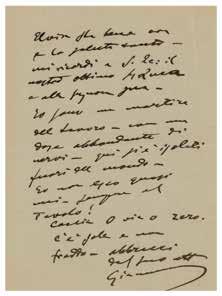 Elvira sta bene ora
e la saluta tanto –
mi ricordi a S. Ec: il
nostro ottimo
e alla signora sua –
Io sono un martire
del lavoro – con una
dose abbondante di
nervi – qui si è isolati
fuori del mondo –
Io non esco quasi
mai – sempre al
Tavolo!
Caccia 0 via 0 zero.
C'è gole e un
freddo – abbracci
dal suo aff